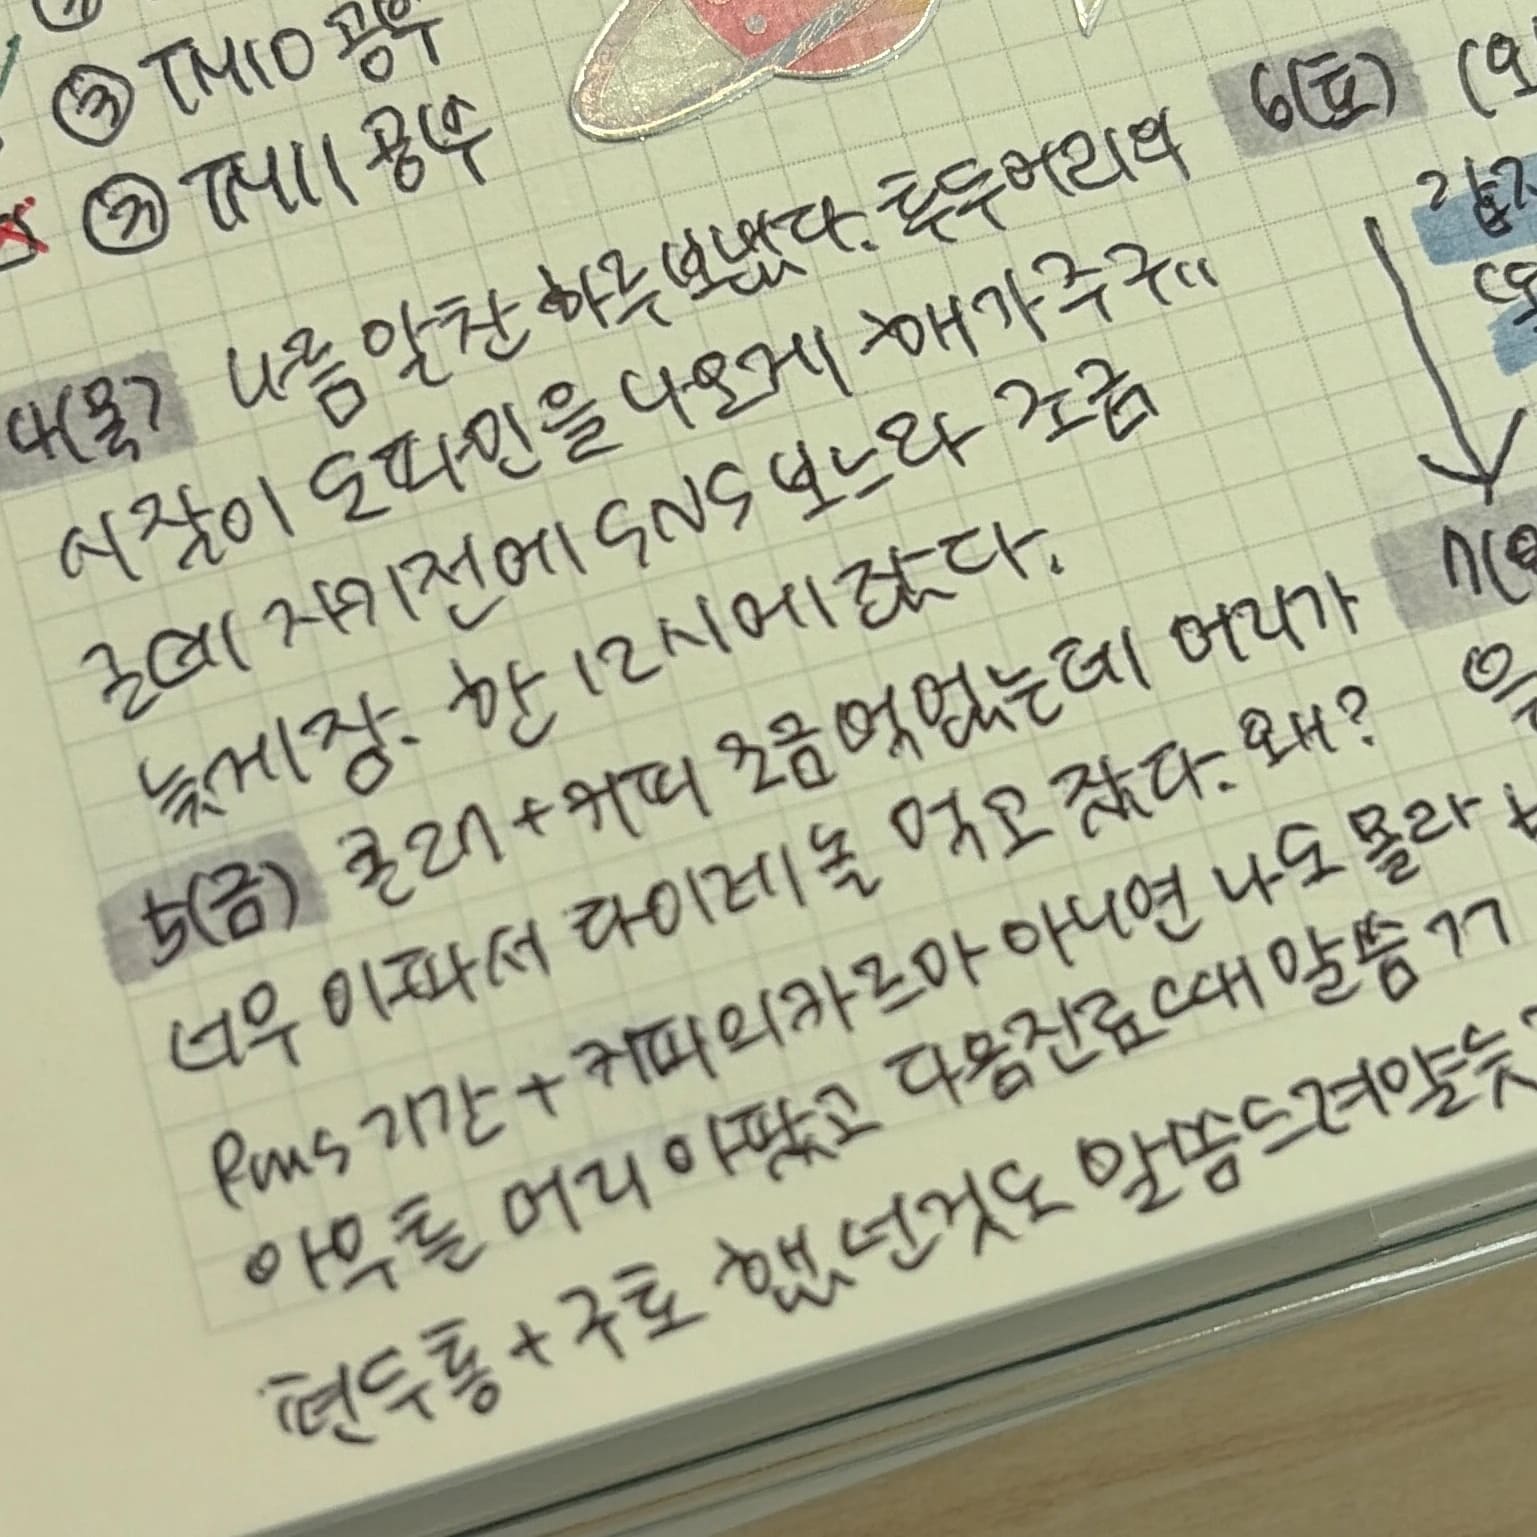 ③ TM10 공부
⑦ TM11 공부
4(목) 나름 알찬 하루 보냈다. 흑두어리의
시작이 도파민을 나오게 해가주구"
근데 자기전에 SNS 보느라 조금
늦게 잠. 한 12시에 잤다.
5(금) 콜라 + 커피 조금 먹었는데 머리가
너무 아파서 타이레놀 먹고 잤다. 왜?
Pms 기간 + 커피의 카르마 아니면 나도 몰라
아무튼 머리 아팠고 다음 진료때 말씀 ㄱㄱ
편두통 + 구토 했던것도 말씀드려야할듯
6(토)